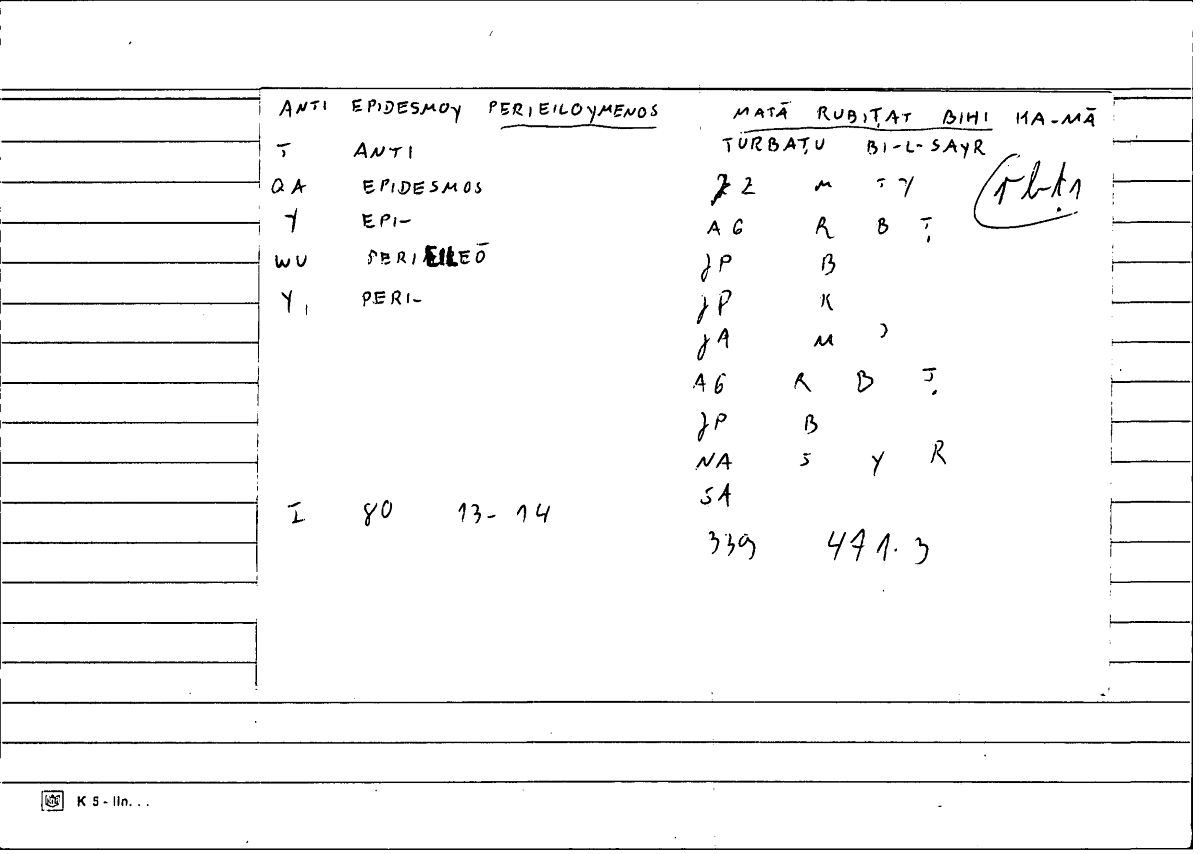 ANTI EPIDESMOY PERIEILOYMENOS
T ANTI
QA EPIDESMOS
Y EPI-
WU PERIEILEŌ
Y, PERI-
I 80 13-14
MATĀ RUBIṬAT BIHI KA-MĀ
TURBAṬU BI-L-SAYR
ZZ M T Y
rbṭ1
AG R B Ṭ
JP B
JP K
JA M
AG R B Ṭ
JP B
NA S Y R
SA
339 471.3
K 5 - IIn. . .